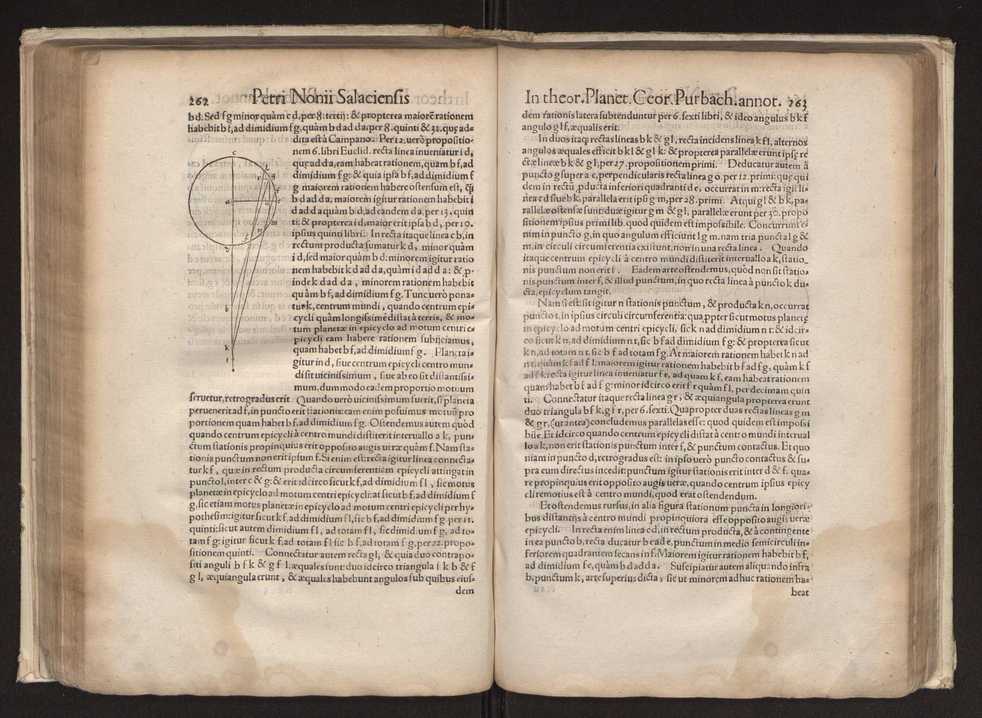 262 Petri Nonii Salaciensis
b d. Sed f g minor quàm c d, per 8. tertij: & propterea maiorē rationem
habebit b f, ad dimidium f g, quàm b d ad d a: per 8. quinti & 31. quę ad-
dita est à Campano. Per 12. uerò propositio-
nem 6. libri Euclid. recta linea inueniatur i d,
quę ad d a, eam habeat rationem, quam b f, ad
dimidium f g: & quia ipsa b f, ad dimidium f
g maiorem rationem habere ostensum est, q̃
b d ad d a, maiorem igitur rationem habebit i
d ad d a quàm b d, ad eandem d a, per 13. quin
ti: & propterea i d, maior erit ipsa b d, per 10.
ipsius quinti libri. In recta itaque linea c b, in
rectum producta sumatur k d, minor quàm
i d, sed maior quàm b d: minorem igitur ratio
nem habebit k d ad d a, quàm i d ad d a: & p-
inde k d ad d a, minorem rationem habebit
quàm b f, ad dimidium f g. Tunc uerò pona-
tur k, centrum mundi, quando centrum epi-
cycli quàm longissimè distat à terris, & mo-
tum planetæ in epicyclo ad motum centri e-
picycli eam habere rationem subijciamus,
quam habet b f, ad dimidium f g. Planeta i-
gitur in d, siue centrum epicycli centro mun-
di sit uicinissimum, siue ab eo sit distantissi-
mum, dummodo eadem proportio motuum
seruetur, retrogradus erit. Quando uerò uicinissimum fuerit, si planeta
peruenerit ad f, in puncto erit stationis: eam enim posuimus motuū pro
portionem quam habet b f, ad dimidium f g. Ostendemus autem quòd
quando centrum epicycli à centro mundi distiterit interuallo a k, pun-
ctum stationis propinquius erit opposito augis ueræ quàm f. Nam sta-
tionis punctum non erit ipsum f. Si enim est: recta igitur linea connecta-
tur k f, quæ in rectum producta circumferentiam epicycli attingat in
puncto l, inter c & g: & erit idcirco sicut k f, ad dimidium f l, sic motus
planetæ in epicyclo ad motum centri epicycli: at sicut b f, ad dimidium f
g, sic etiam motus planetæ in epicyclo ad motum centri epicycli per hy-
pothesim: igitur sicut k f, ad dimidium f l, sic b f, ad dimidium f g per 11.
quinti: sicut autem dimidium f l, ad totam f l, sic dimidium f g, ad to-
tam f g: igitur sicut k f, ad totam f l sic b f, ad totam f g, per 22. propo-
sitionem quinti. Connectatur autem recta g l, & quia duo contrapo-
siti anguli b f k & g f l, æquales sunt: duo idcirco triangula f k b & f
g l, æquiangula erunt, & æquales habebunt angulos sub quibus eius-
dem
In theor. Planet. Geor. Purbach. annot. 263
dem rationis latera subtenduntur per 6. sexti libri, & ideo angulus b k f
angulo g l f, æqualis erit.
In duos itaq; rectas lineas b k & g l, recta incidens linea k f l, alternos
angulos æquales efficit b k l & g l k: & propterea parallelæ erunt ipsę re
ctæ lineæ b k & g l, per 27. propositionem primi. Deducatur autem à
puncto g super a e, perpendicularis recta linea g o, per 12. primi: quę qui
dem in rectū, pducta inferiori quadranti d e, occurrat in m: recta igit li-
nea c d siue b k, parallela erit ipsi g m, per 28. primi. At qui g l & b k, pa-
rallelæ ostensæ sunt: duæ igitur g m & g l, parallelæ erunt per 30. propo
sitionem ipsius primi lib. quod quidem est impossibile. Concurrunt ei
nim in puncto g, in quo angulum efficiunt l g m. nam tria puncta l g &
m, in circuli circumferentia existunt, non in una recta linea. Quando
itaque centrum epicycli à centro mundi distiterit interuallo a k, statio-
nis punctum non erit f. Eadem arte ostendemus, quòd non sit statio-
nis punctum inter f, & illud punctum, in quo recta linea à puncto k du-
cta, epicyclum tangit.
Nam si est: sit igitur n stationis punctum, & producta k n, occurrat
puncto t, in ipsius circuli circumferentia: quapropter sicut motus planetę
in epicyclo ad motum centri epicycli, sic k n ad dimidium n t: & idcir-
co sicut k n, ad dimidium n t, sic b f ad dimidium f g: & propterea sicut
k n, ad totam n t, sic b f ad totam f g. At maiorem rationem habet k n ad
n t, quàm k f ad f l: maiorem igitur rationem habebit b f ad f g, quàm k f
ad f l: recta igitur linea inueniatur f r, ad quam k f, eam habeat rationem
quam habet b f ad f g: minor idcirco erit f r quàm f l, per decimam quin
ti. Connectatur itaque recta linea g r, & æquiangula propterea erunt
duo triangula b f k, g f r, per 6. sexti. Quapropter duas rectas lineas g m
& g r, (ut antea) concludemus parallelas esse: quod quidem est impossi
bile. Et idcirco quando centrum epicycli distat à centro mundi interual
lo a k, non erit stationis punctum inter f, & punctum contactus. Et quo
niam in puncto d, retrogradus est: in ipso uerò puncto contactus & su-
pra eum directus incedit: punctum igitur stationis erit inter d & f. qua-
re propinquius erit opposito augis ueræ, quando centrum ipsius epicy
cli remotius est à centro mundi, quod erat ostendendum.
Et ostendemus rursus, in alia figura stationum puncta in longiori-
bus distantijs à centro mundi propinquiora esse opposito augis ueræ
epicycli. In recta enim linea c d, in rectum producta, & à contingente
in ea puncto b, recta ducatur b e a d e, punctum in medio semicirculi in-
feriorem quadrantem secans in f. Maiorem igitur rationem habebit b f,
ad dimidium f e, quàm b d ad d a. Suscipiatur autem aliquando infra
b, punctum k, arte superius dicta, sic ut minorem adhuc rationem ha-
beat